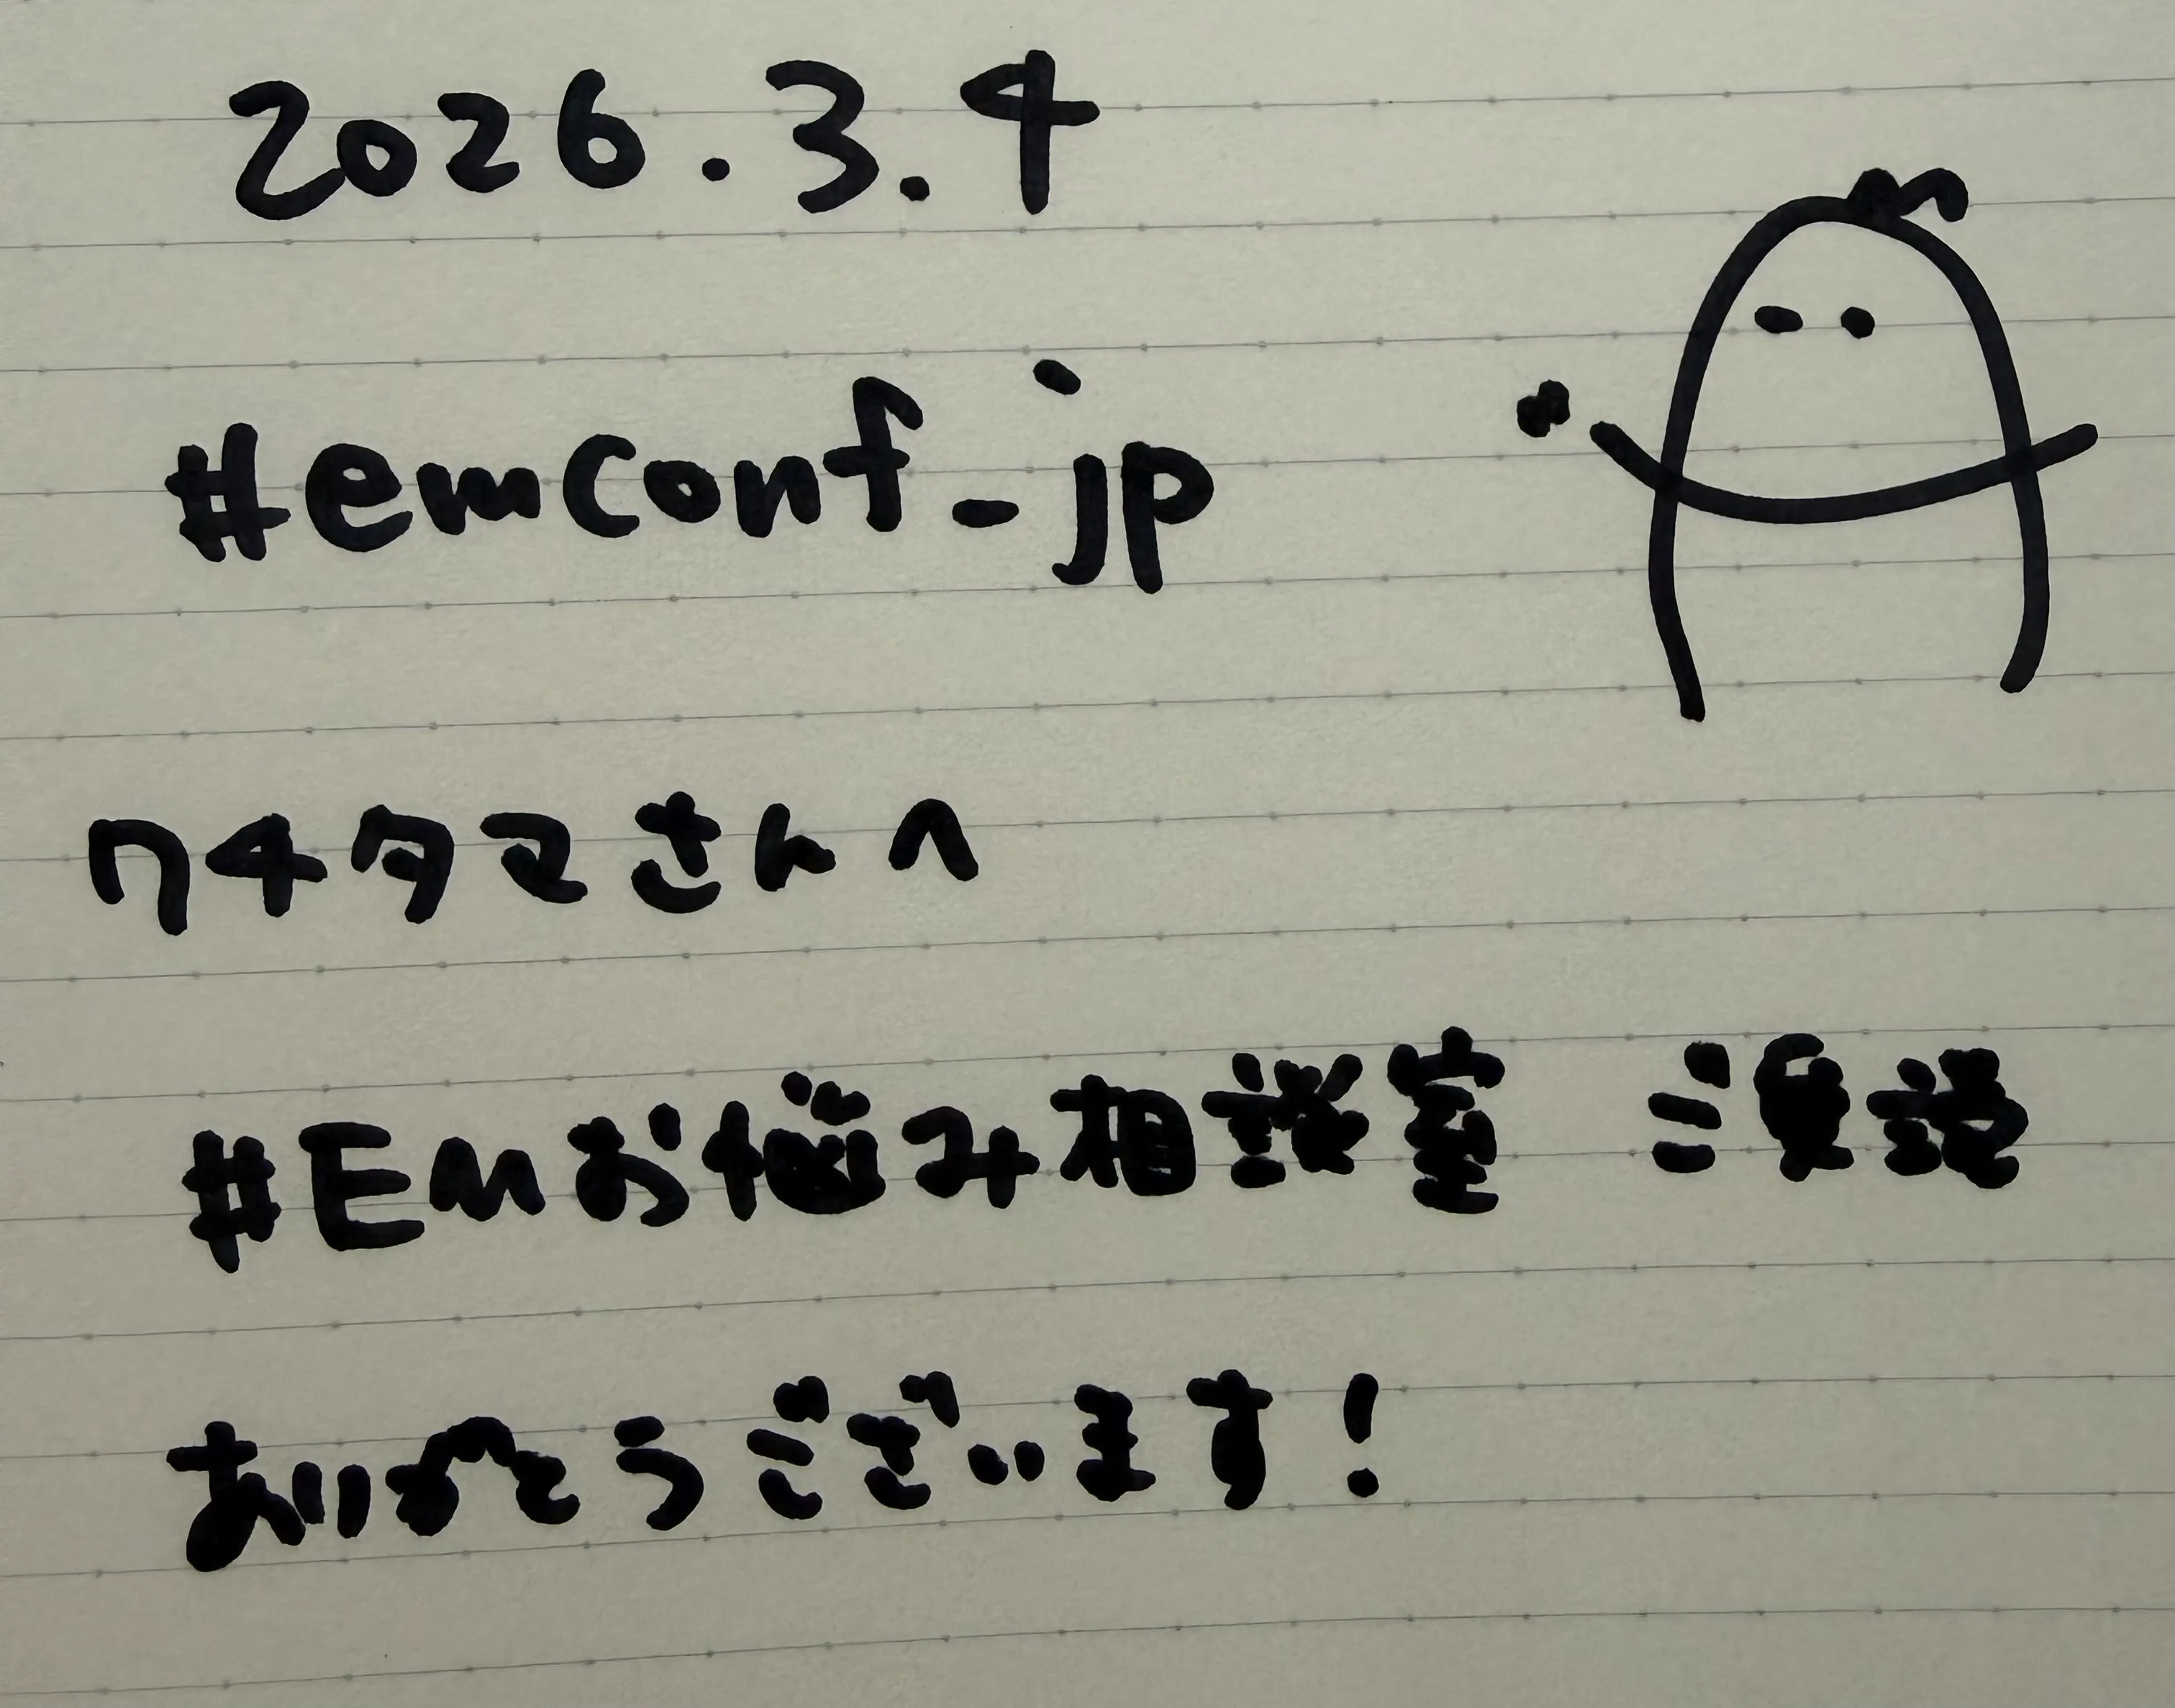 2026.3.4
#emconf_jp
ワキタマさんへ
#EMお悩み相談室 ご愛読
ありがとうございます!